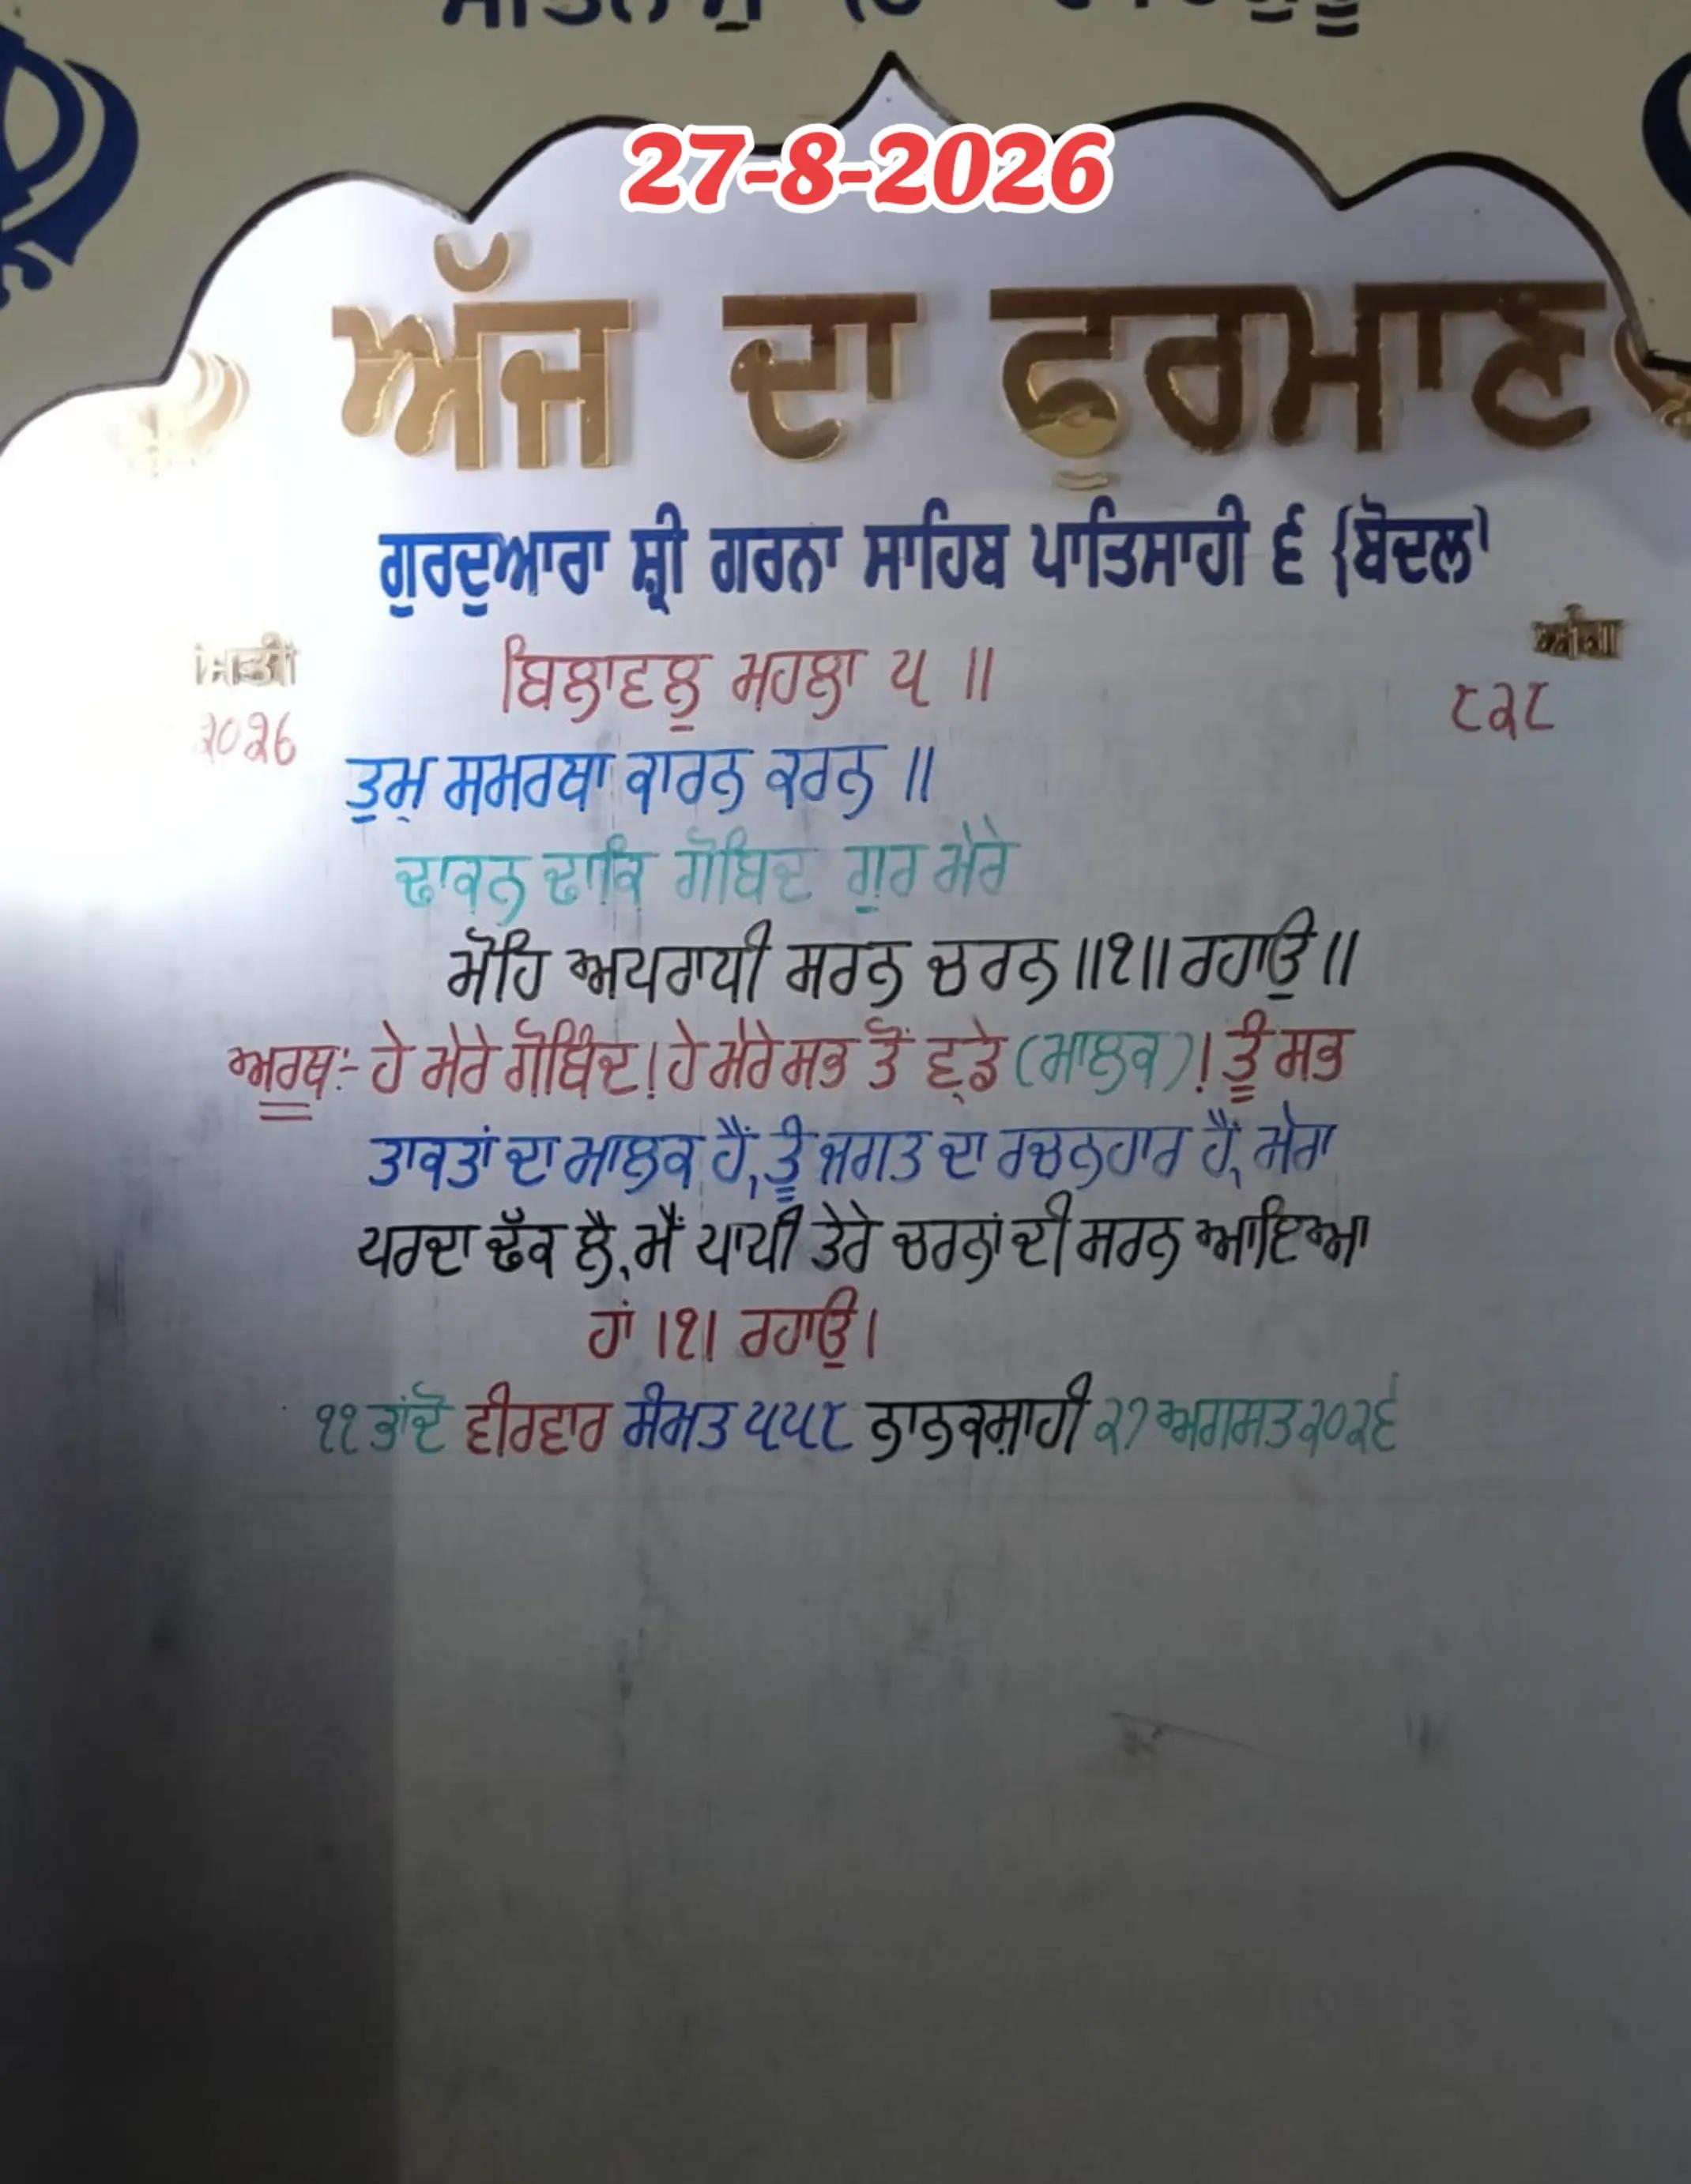 27-8-2026
ਅੱਜ ਦਾ ਫੁਰਮਾਣ
ਗੁਰਦੁਆਰਾ ਸ਼੍ਰੀ ਗਰਨਾ ਸਾਹਿਬ ਪਾਤਿਸਾਹੀ ੬ {ਬੋਦਲਾਂ
ਮਿਤੀ ਅੰਗ
ਬਿਲਾਵਲੁ ਮਹਲਾ ੫ ॥
੨੦੨6 ੮੨੮
ਤੁਮ੍ ਸਮਰਥਾ ਕਾਰਨ ਕਰਨ ॥
ਢਾਕਨ ਢਾਕਿ ਗੋਬਿਦ ਗੁਰ ਮੇਰੇ
ਮੋਹਿ ਅਪਰਾਧੀ ਸਰਨ ਚਰਨ ॥੧॥ ਰਹਾਉ ॥
ਅਰਥ:- ਹੇ ਮੇਰੇ ਗੋਬਿੰਦ! ਹੇ ਮੇਰੇ ਸਭ ਤੋਂ ਵ੍ਡੇ (ਮਾਲਕ)! ਤੂੰ ਸਭ
ਤਾਕਤਾਂ ਦਾ ਮਾਲਕ ਹੈਂ, ਤੂੰ ਜਗਤ ਦਾ ਰਚਨਹਾਰ ਹੈਂ, ਮੇਰਾ
ਪਰਦਾ ਢੱਕ ਲੈ, ਮੈਂ ਪਾਪੀ ਤੇਰੇ ਚਰਨਾਂ ਦੀ ਸਰਨ ਆਇਆ
ਹਾਂ ।੧। ਰਹਾਉ।
੧੧ ਭਾਂਦੋ ਵੀਰਵਾਰ ਸੰਮਤ ੫੫੮ ਨਾਨਕਸ਼ਾਹੀ ੨੭ ਅਗਸਤ ੨੦੨੬